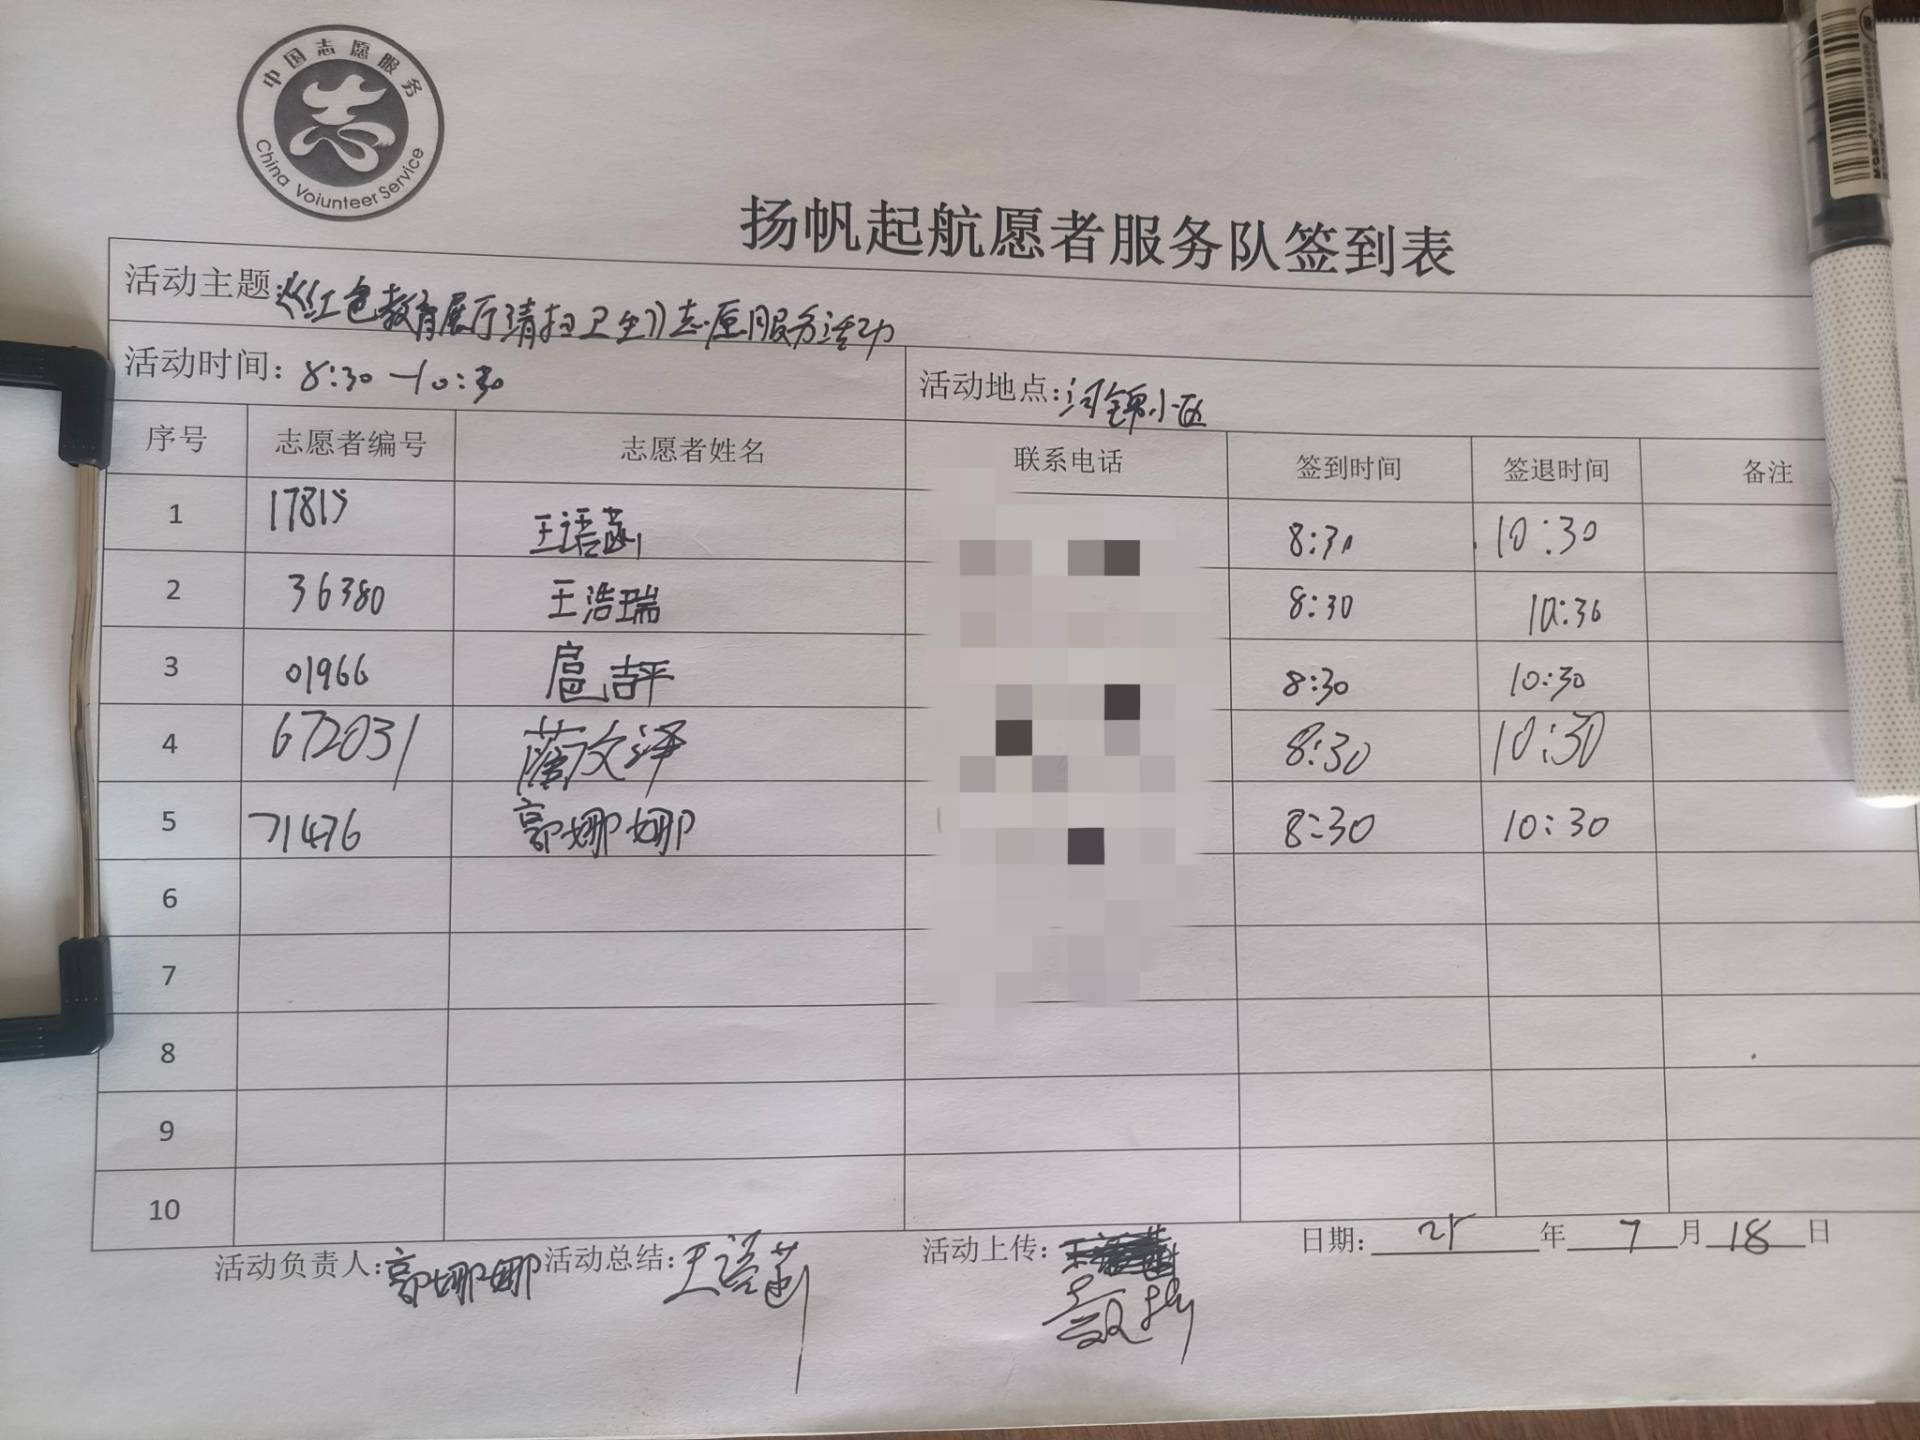 中国志愿服务
China Voiunteer Service
扬帆起航愿者服务队签到表
活动主题:《红色教育展厅清扫卫生》志愿服务活动
活动时间: 8:30-10:30 活动地点:河锦小区
序号 志愿者编号 志愿者姓名 联系电话 签到时间 签退时间 备注
1 17815 王语菡 8:30 10:30
2 36380 王浩瑞 8:30 10:30
3 01966 扈吉平 8:30 10:30
4 672031 文泽 8:30 10:30
5 71476 郭娜娜 8:30 10:30
6
7
8
9
10
活动负责人:郭娜娜 活动总结:王语菡 活动上传: 日期: 25 年 7 月 18 日